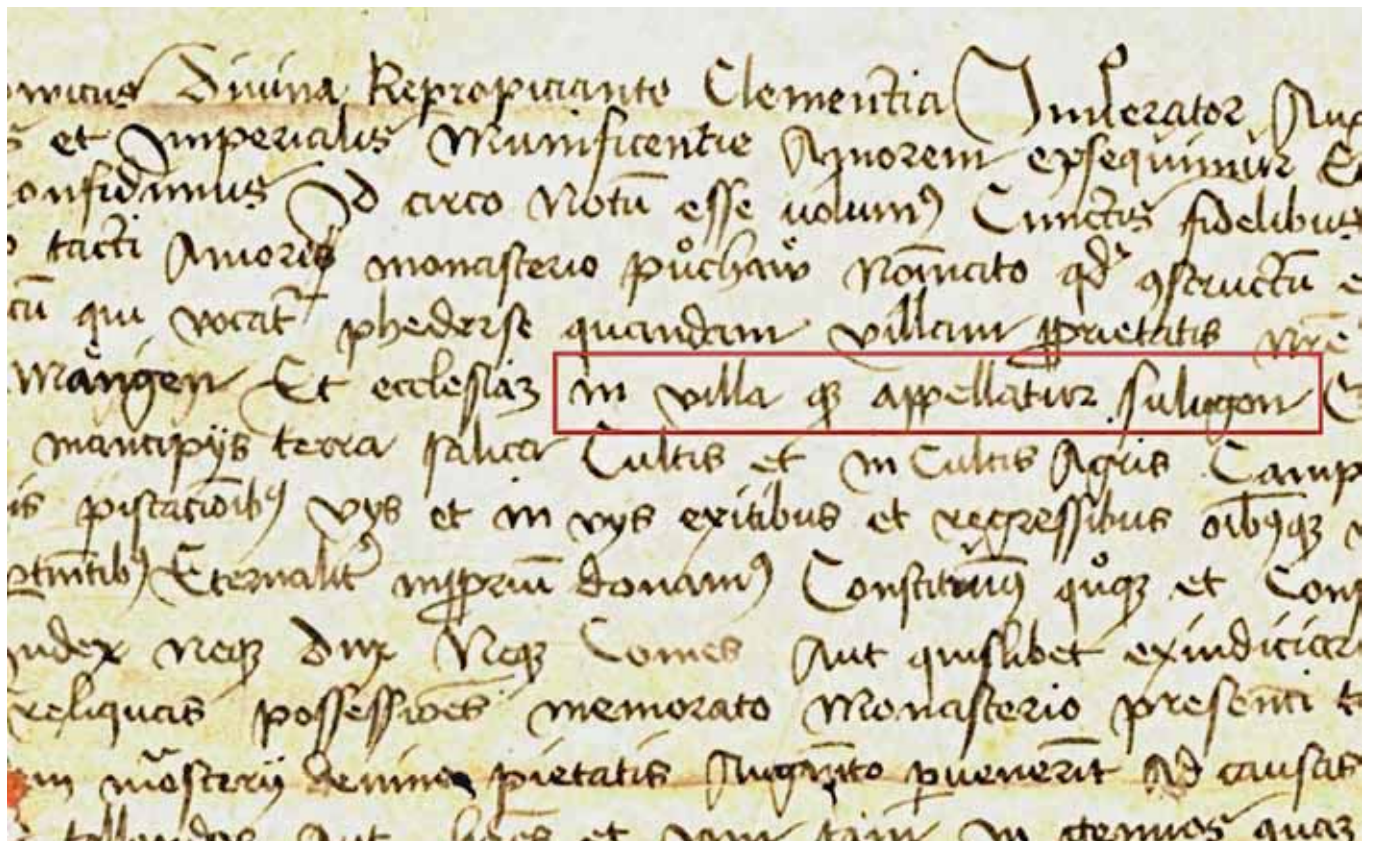 Divina Repropiciante Clementia Imperator
et Imperialis Munificentie Amorem exsequimur
Id circo Notū esse volumꝰ Cunctis fidelibus
tacti Amoris monasterio půchaw Nomīato qd ꝯstructū
qui vocat̄ phederse quandam villam ꝓprietatis nr̄e
Mängen Et ecclesiaʒ in villa qʒ appellatur sulugon
mancipijs terra salica Cultis et in Cultis Agris Camp
is piscacōibꝰ vys et in vys exitibus et regressibus oībꝰqʒ
Eternalit̉ in ꝓpriū donamꝰ Constituimꝰ qůqʒ et Cons
udex Neqʒ Dux Neqʒ Comes Aut quislibet exiudiciari
reliquas possessiōes memorato Monasterio presenti
pietatis Augm̄to ꝑuenerīt Ad causas
Aut et in